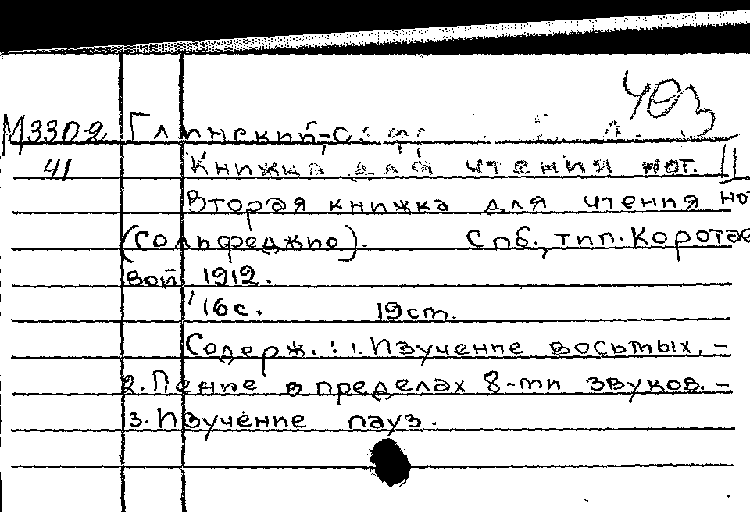 403
М3302 Глинский,
41 Книжка для чтения нот. II
Вторая книжка для чтения но
(Сольфеджио). Спб., тип. Коротае
вой 1912.
16с. 19ст.
Содерж.: 1. Изучение восьмых. –
2. Пение в пределах 8-ми звуков. –
3. Изучение пауз.